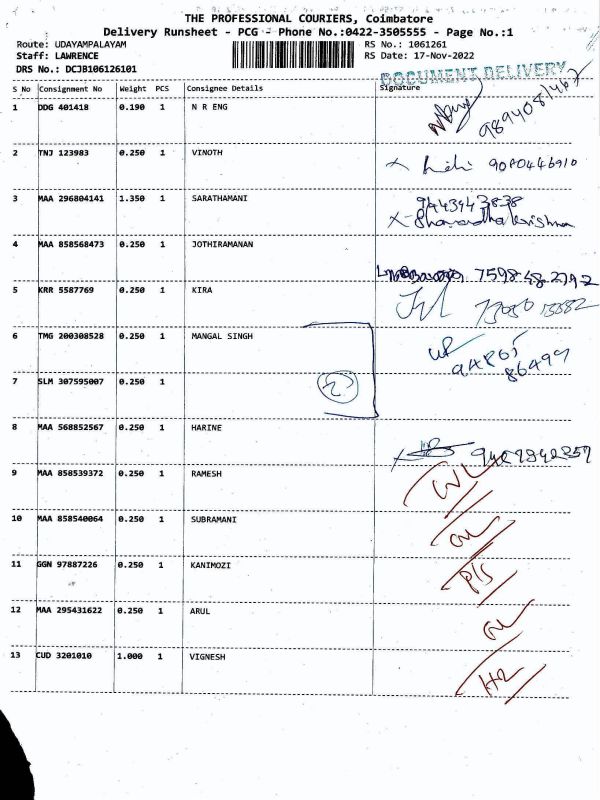 THE PROFESSIONAL COURIERS, Coimbatore
Delivery Runsheet - PCG - Phone No.:0422-3505555 - Page No.:1
Route: UDAYAMPALAYAM RS No.: 1061261
Staff: LAWRENCE RS Date: 17-Nov-2022
DRS No.: DCJB106126101
DOCUMENT DELIVERY
S No Consignment No Weight PCS Consignee Details Signature
1 DDG 401418 0.190 1 N R ENG
2 TNJ 123983 0.250 1 VINOTH
3 MAA 296804141 1.350 1 SARATHAMANI 9443943838
4 MAA 858568473 0.250 1 JOTHIRAMANAN 7598482792
5 KRR 5587769 0.250 1 KIRA
6 TMG 200308528 0.250 1 MANGAL SINGH
7 SLM 307595007 0.250 1
8 MAA 568852567 0.250 1 HARINE
9 MAA 858539372 0.250 1 RAMESH
10 MAA 858540064 0.250 1 SUBRAMANI
11 GGN 97887226 0.250 1 KANIMOZI
12 MAA 295431622 0.250 1 ARUL
13 CUD 3201010 1.000 1 VIGNESH